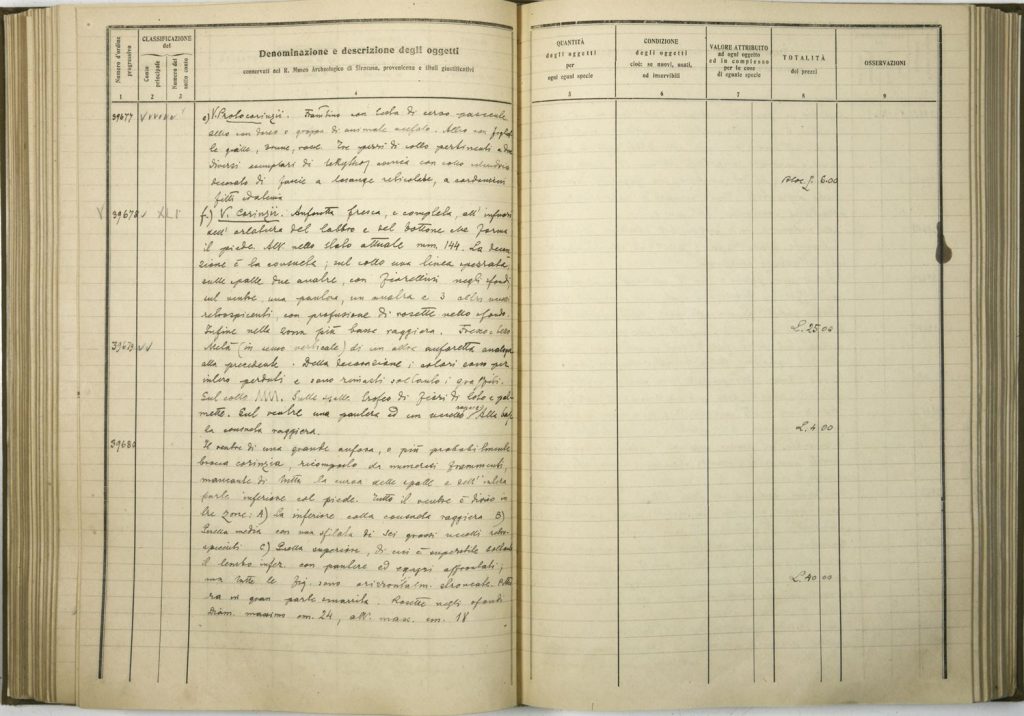 Numero d'ordine progressivo
CLASSIFICAZIONE del
Conto principale
Numero del sotto conto
Denominazione e descrizione degli oggetti
conservati nel R. Museo Archeologico di Siracusa, provenienza e titoli giustificativi
1 2 3 4
QUANTITÀ degli oggetti per ogni egual specie
CONDIZIONE degli oggetti cioè: se nuovi, usati, ed inservibili
VALORE ATTRIBUITO ad ogni oggetto ed in complesso per le cose di eguale specie
TOTALITÀ dei prezzi
OSSERVAZIONI
5 6 7 8 9
39677 e) V. Protocorinzii. con testa di cervo pascente
altro con dorso e groppa di animale acefalo. Altro con
gialle, rosse. Tre pezzi di collo pertinenti a due
diversi esemplari di lekythoi con collo
decorato di fascie a losange reticolate, a
fitti
L. 6.00
39678 f.) V. Corinzii. Anforetta fresca, e completa, all'infuori
dell' del labbro e del bottone che forma
il piede. Alt. nello stato attuale mm. 144. La decora
zione è la consueta; sul collo una linea spezzata,
sulle spalle due anatre, con fiorellini negli sfondi
sul ventre, una pantera, un'anatra e 3 altri
retrospicenti, con profusione di rosette nello sfondo.
Infine nella zona più bassa raggiera.
L. 25.00
39679 Metà (in senso verticale) di un'altra anforetta analoga
alla precedente. Della decorazione i colori sono per
intero perduti e sono rimasti soltanto i graffiti.
Sul collo Sulle spalle trofeo di fiori di loto e pal
mette. Sul ventre una pantera ed un uccello Alla base
la consueta raggiera.
L. 4.00
39680
Il ventre di una grande anfora, o più probabilmente
brocca corinzia, ricomposto da numerosi frammenti,
mancante di tutta la curva delle spalle e dell'intera
parte inferiore col piede. Tutto il ventre è diviso in
tre zone: A) la inferiore colla consueta raggiera B)
Quella media con una sfilata di sei grossi uccelli retro-
spicienti C) Quella superiore, di cui è superstite soltanto
il lembo infer. con pantere ed egagri affrontati;
ma tutte le fig. sono orizzontalm. stroncate.
ra in gran parte smarrita. Rosette negli sfondi
Diam. massimo cm. 24, alt. mass. cm. 18
L. 40 00